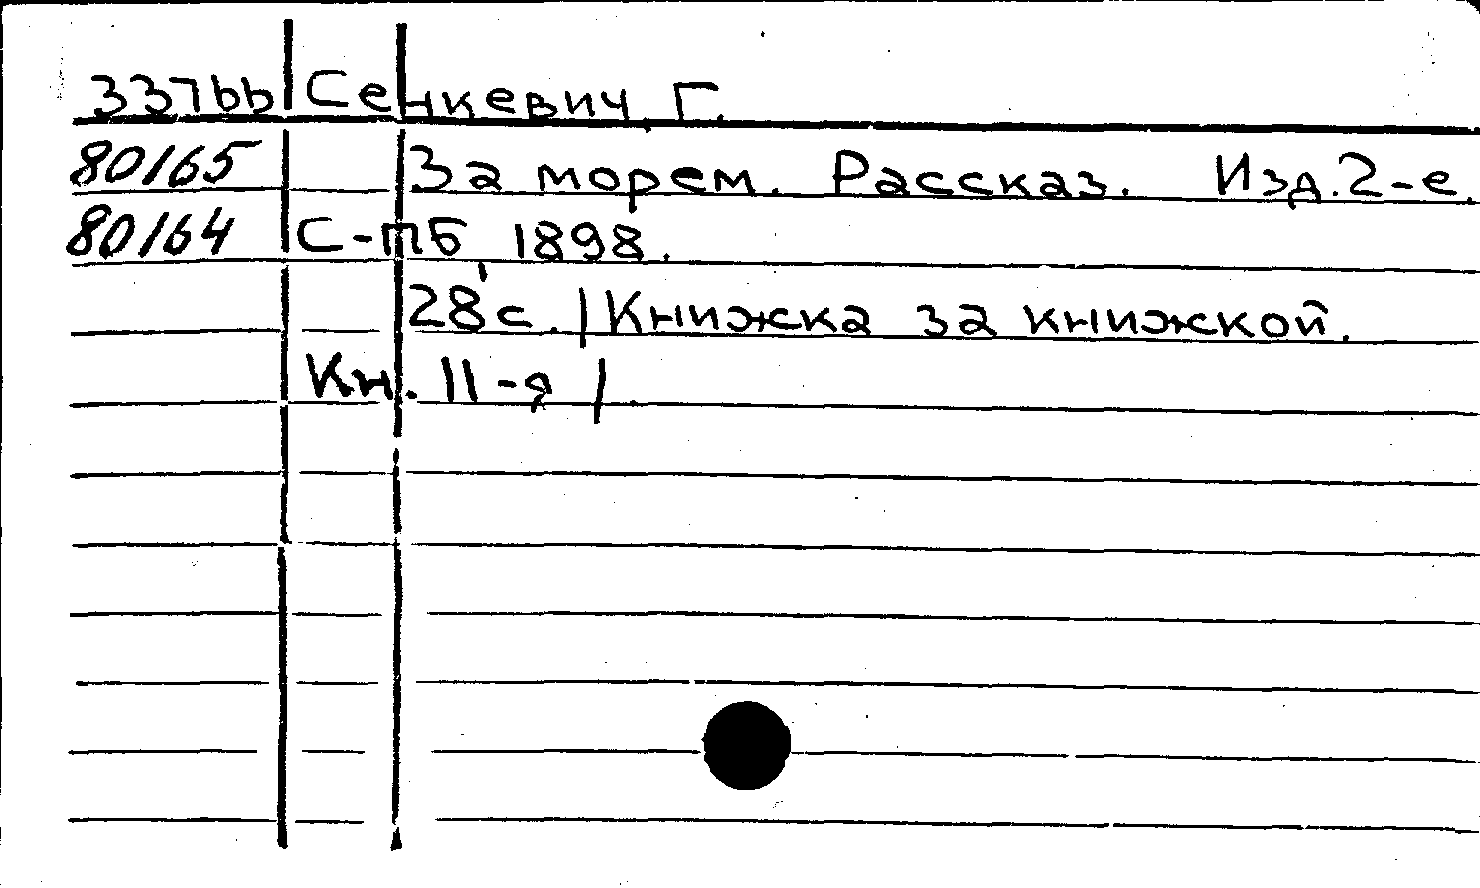 337bb Сенкевич, Г.
80/165 За морем. Рассказ. Изд. 2-е.
80/164 С-пб, 1898.
28 с. /Книжка за книжкой.
Кн. 11-я/.